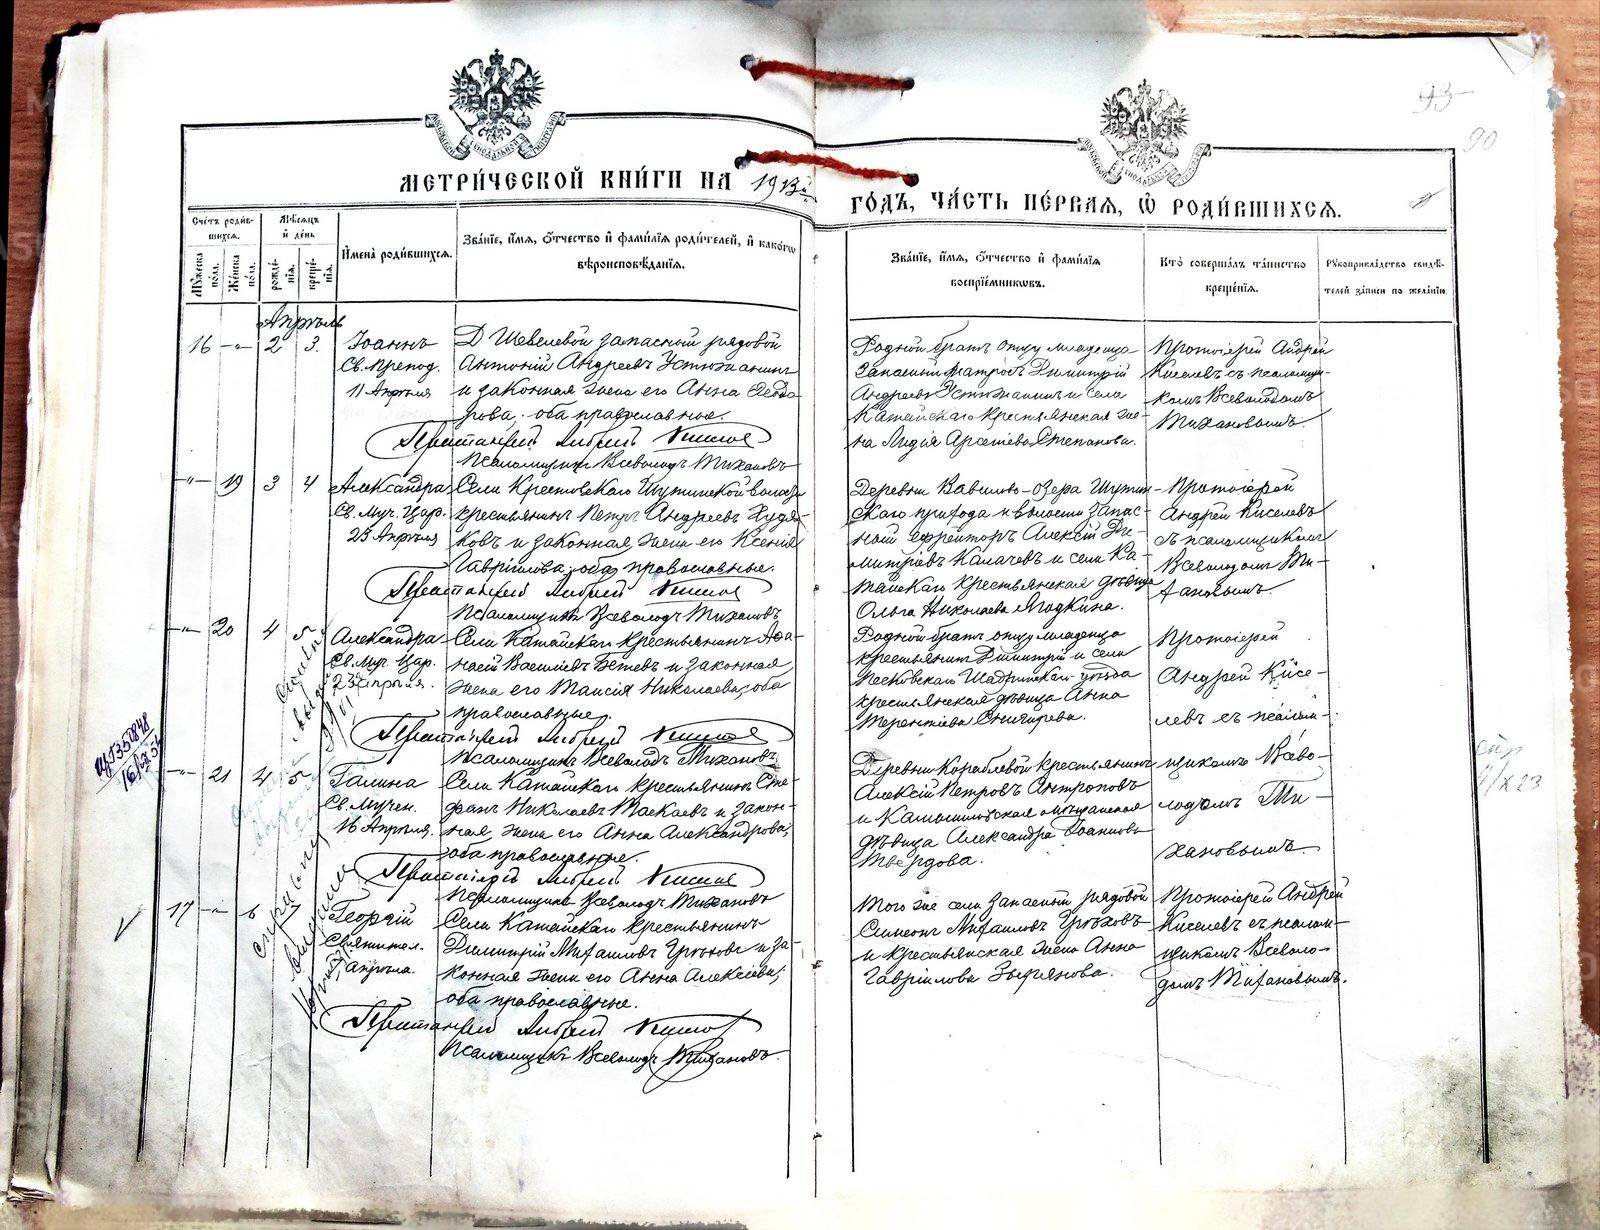 93
90
МЕТРИ́ЧЕСКОЙ КНИ́ГИ НА 1913й
ГО́ДЪ, ЧА́СТЬ ПЕ́РВАЯ, Ѡ РОДИ́ВШИХСЯ.
Счетъ роди́вшихся.
Мѣсяцъ и҆ де́нь
Мꙋжеска по́ла.
Же́нска по́ла.
рожде́нїѧ.
креще́нїѧ.
И҆мена̀ роди́вшихсѧ.
Зва́нїе, и҆́мѧ, о҆́тчество и҆ фами́лїѧ роди́телей, и҆ како́гѡ
вѣроисповѣ́данїѧ.
Зва́нїе, и҆́мѧ, о҆́тчество и҆ фами́лїѧ
воспрїе́мникѡвъ.
Кто̀ соверша́лъ та́инство
креще́нїѧ.
Рꙋкоприкла́дство свидѣ́-
телей за́писи по жела́нїю
Апрѣль
16 -„- 2 3.
Іоаннъ
Св. препод.
11 Апрѣля
Д Шевелевой запасный рядовой
Антоній Андреевъ Устюжанинъ
и законная жена его Анна Ѳедо
рова; оба православные.
Протоіерей Андрей Киселев
Псаломщикъ Всеволодъ Тихановъ
Родной братъ отцу младенца
запасный матросъ Димитрій
Андреевъ Устюжанинъ и села
Катайскаго крестьянская же-
на Лидія Арсеніева Степанова.
Протоіерей Андрей
Киселевъ съ псаломщи-
комъ Всеволодомъ
Тихановымъ
-„- 19 3 4
Александра
Св. муч. Цар.
23 Апрѣля
Села Крестовскаго Шутинской волости
крестьянинъ Петръ Андреевъ Худя-
ковъ и законная жена его Ксенія
Гавріилова; оба православные.
Протоіерей Андрей Киселев
Псаломщикъ Всеволодъ Тихановъ
Деревни Вавилово-озера Шутин-
скаго прихода и волости запас-
ный ефрейторъ Алексій Ди-
митріевъ Калачевъ и села Ка-
тайскаго крестьянская дѣвица
Ольга Николаева Ягодкина.
Протоіерей
Андрей Киселевъ
съ псаломщикомъ
Всеволодомъ Ти-
хановымъ.
-„- 20 4 5
Александра
Св. Муч. Цар.
23 апрѣля.
Села Катайскаго крестьянинъ Аѳа-
насій Василіевъ Бетевъ и законная
жена его Таисія Николаева; оба
православные.
Протоіерей Андрей Киселев
Псаломщикъ Всеволодъ Тихановъ
Родной братъ отцу младенца
крестьянинъ Димитрій и села
Песковскаго Шадринскаго уѣзда
крестьянская дѣвица Анна
Терентіева Снигирева.
Протоіерей
Андрей Кисе-
левъ съ псалом-
-„- 21 4 5
Галина
Св. Мучен.
16 Апрѣля.
Села Катайскаго крестьянинъ Сте-
фанъ Николаевъ Васкаевъ и закон-
ная жена его Анна Александрова;
оба православные.
Протоіерей Андрей Киселев
Псаломщикъ Всеволодъ Тихановъ
Деревни Кораблевой крестьянинъ
Алексій Петровъ Антроповъ
и Камышловская мѣщанская
дѣвица Александра Іоаннова
Твердова.
щикомъ Всево-
лодомъ Ти-
хановымъ.
17 -„- 6 7
Георгій
Святител.
апрѣля.
Села Катайскаго крестьянинъ
Димитрій Михаиловъ Грѣховъ и за-
конная жена его Анна Алексіева;
оба православные.
Протоіерей Андрей Киселев
Псаломщикъ Всеволодъ Тихановъ.
Того же села запасный рядовой
Симеонъ Михаиловъ Грѣховъ
и крестьянская жена Анна
Гавріилова Зырянова.
Протоіерей Андрей
Киселевъ съ псалом-
щикомъ Всеволо-
домъ Тихановымъ.